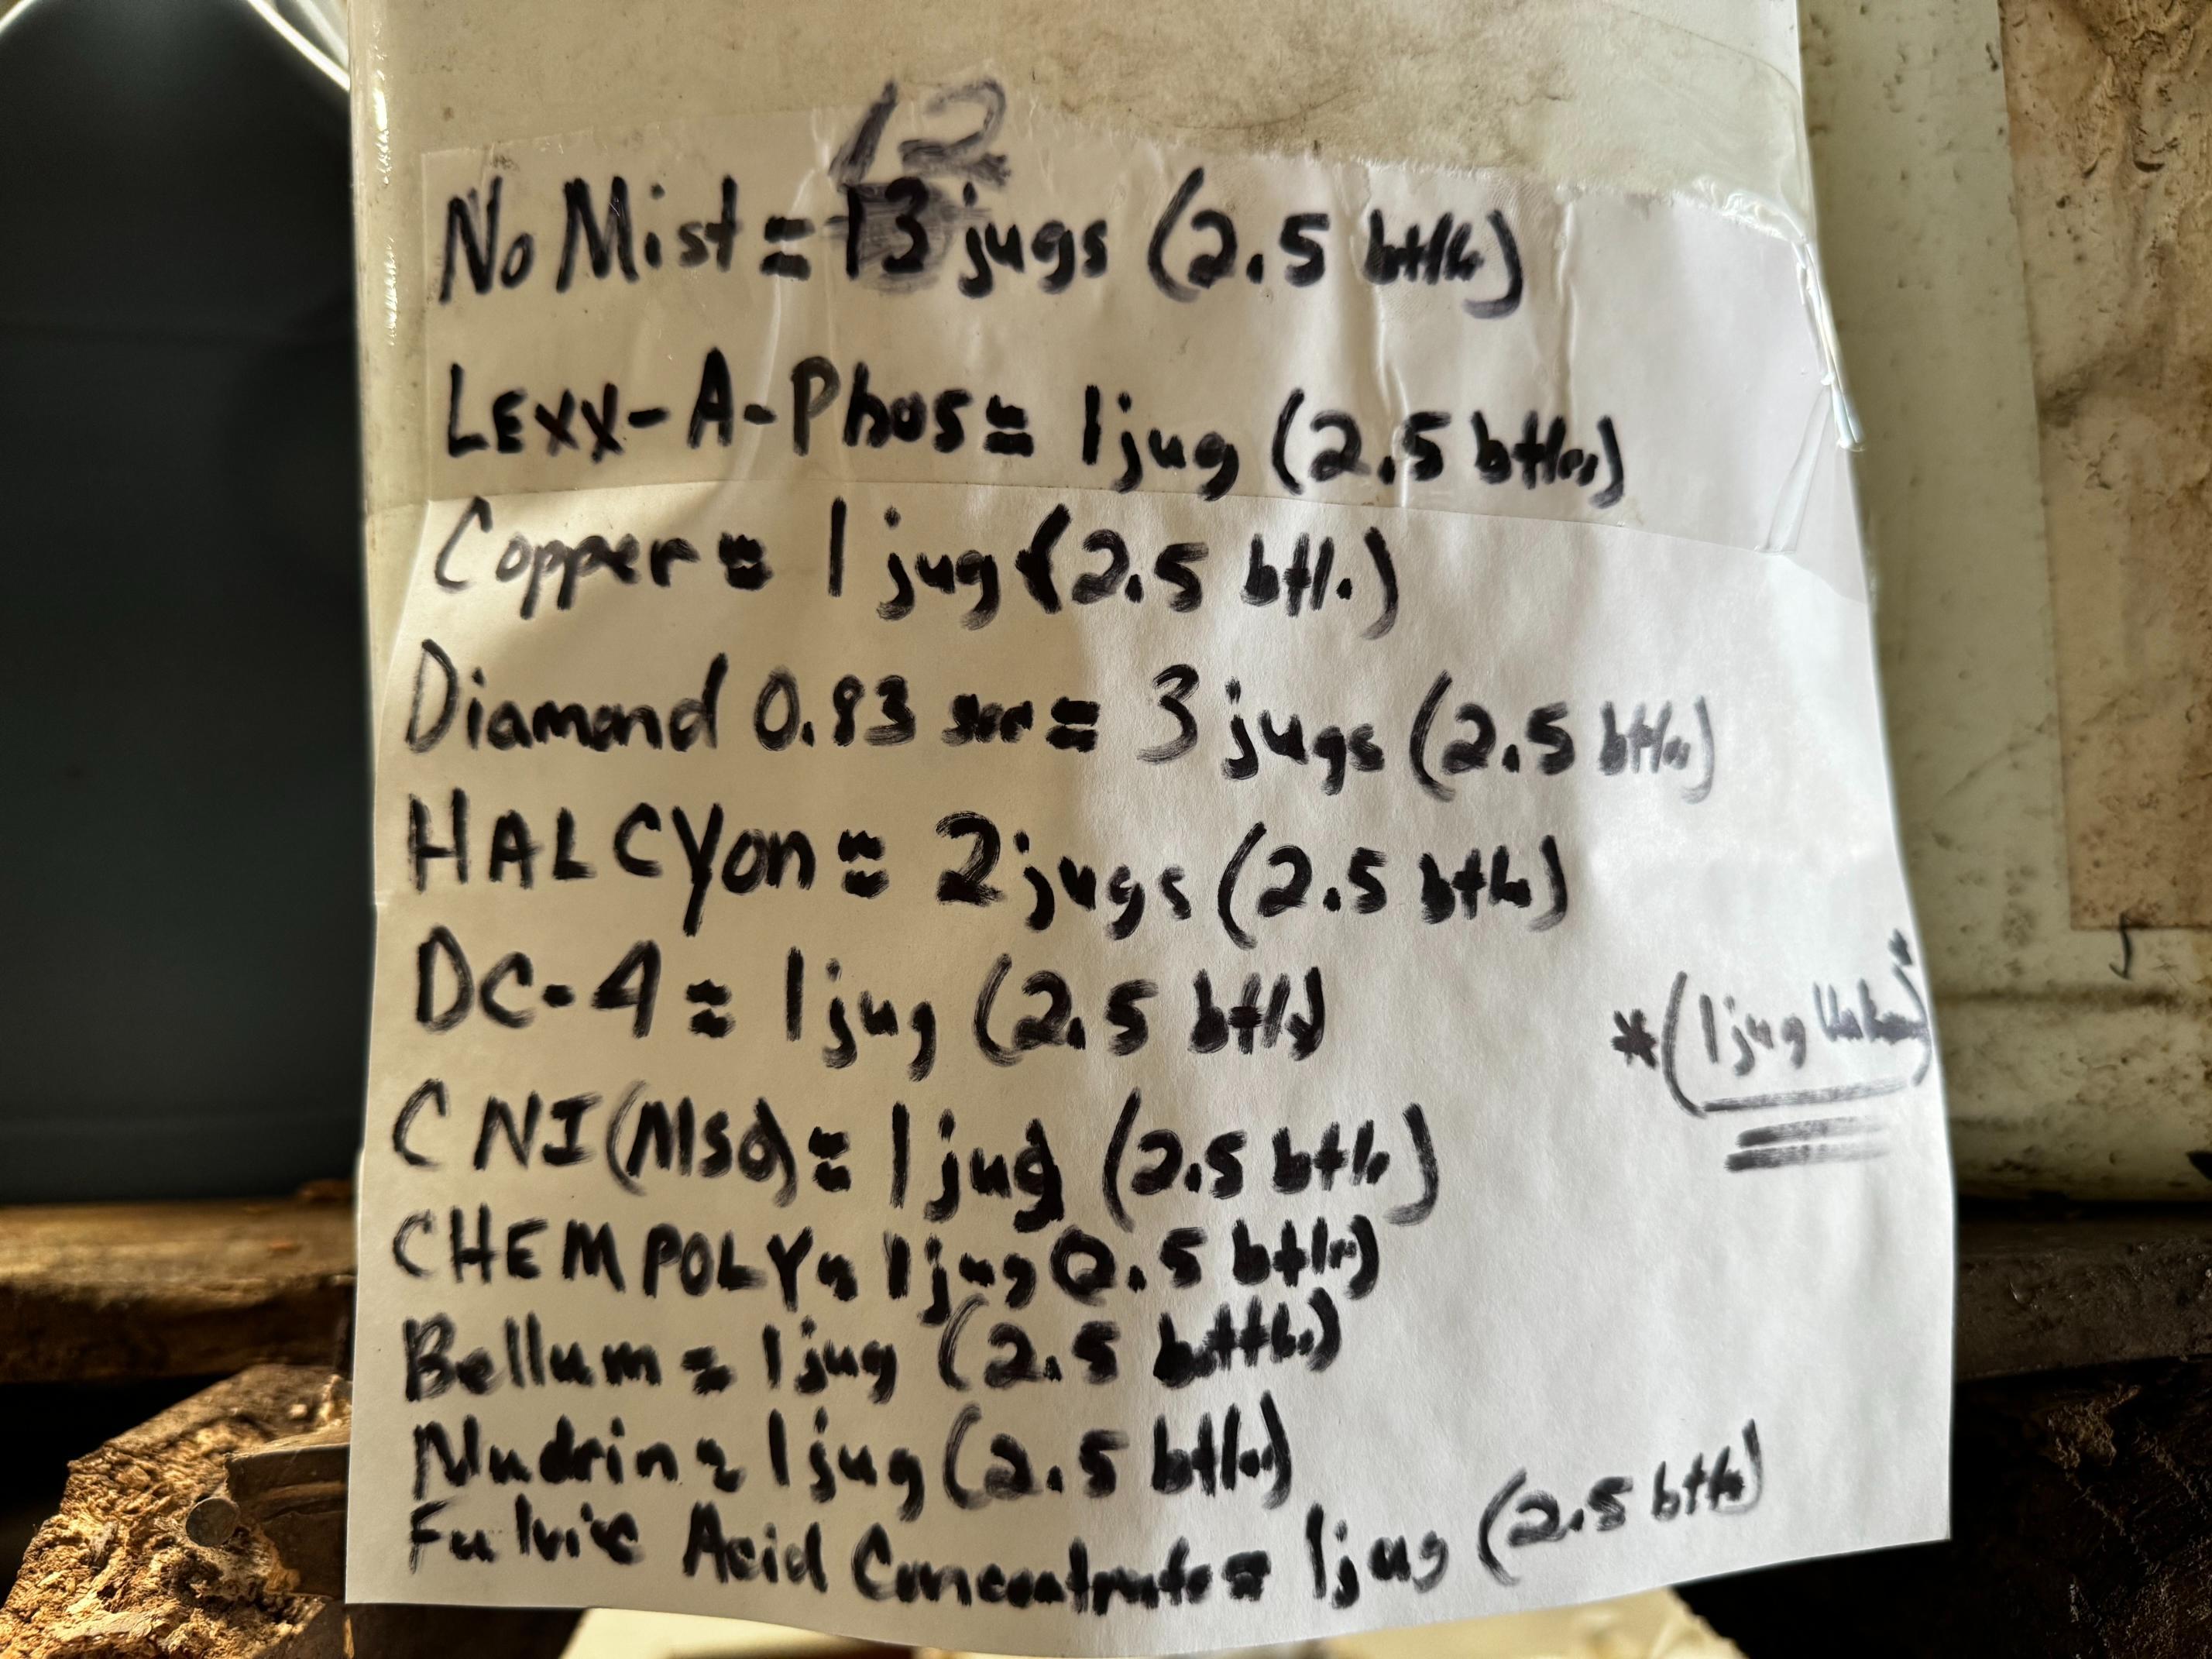 12
No Mist = 13 jugs (2.5 bttls)
LEXX-A-Phos = 1 jug (2.5 bttls)
Copper = 1 jug (2.5 bttl.)
Diamond 0.83 = 3 jugs (2.5 bttls)
HALCYon = 2 jugs (2.5 bttls)
DC-4 = 1 jug (2.5 bttl)
*(1 jug Unknown)*
CNI (MSO) = 1 jug (2.5 bttl.)
CHEM POLY = 1 jug (2.5 bttls)
Bellum = 1 jug (2.5 bottls)
Nudrin = 1 jug (2.5 bttls)
Fulvic Acid Concentrate = 1 jug (2.5 bttls)